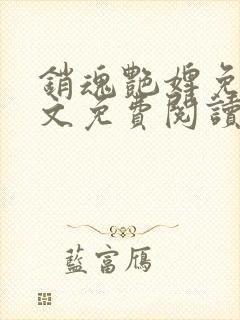 銷魂艷婢免
文免費閱讀
藍富鴈